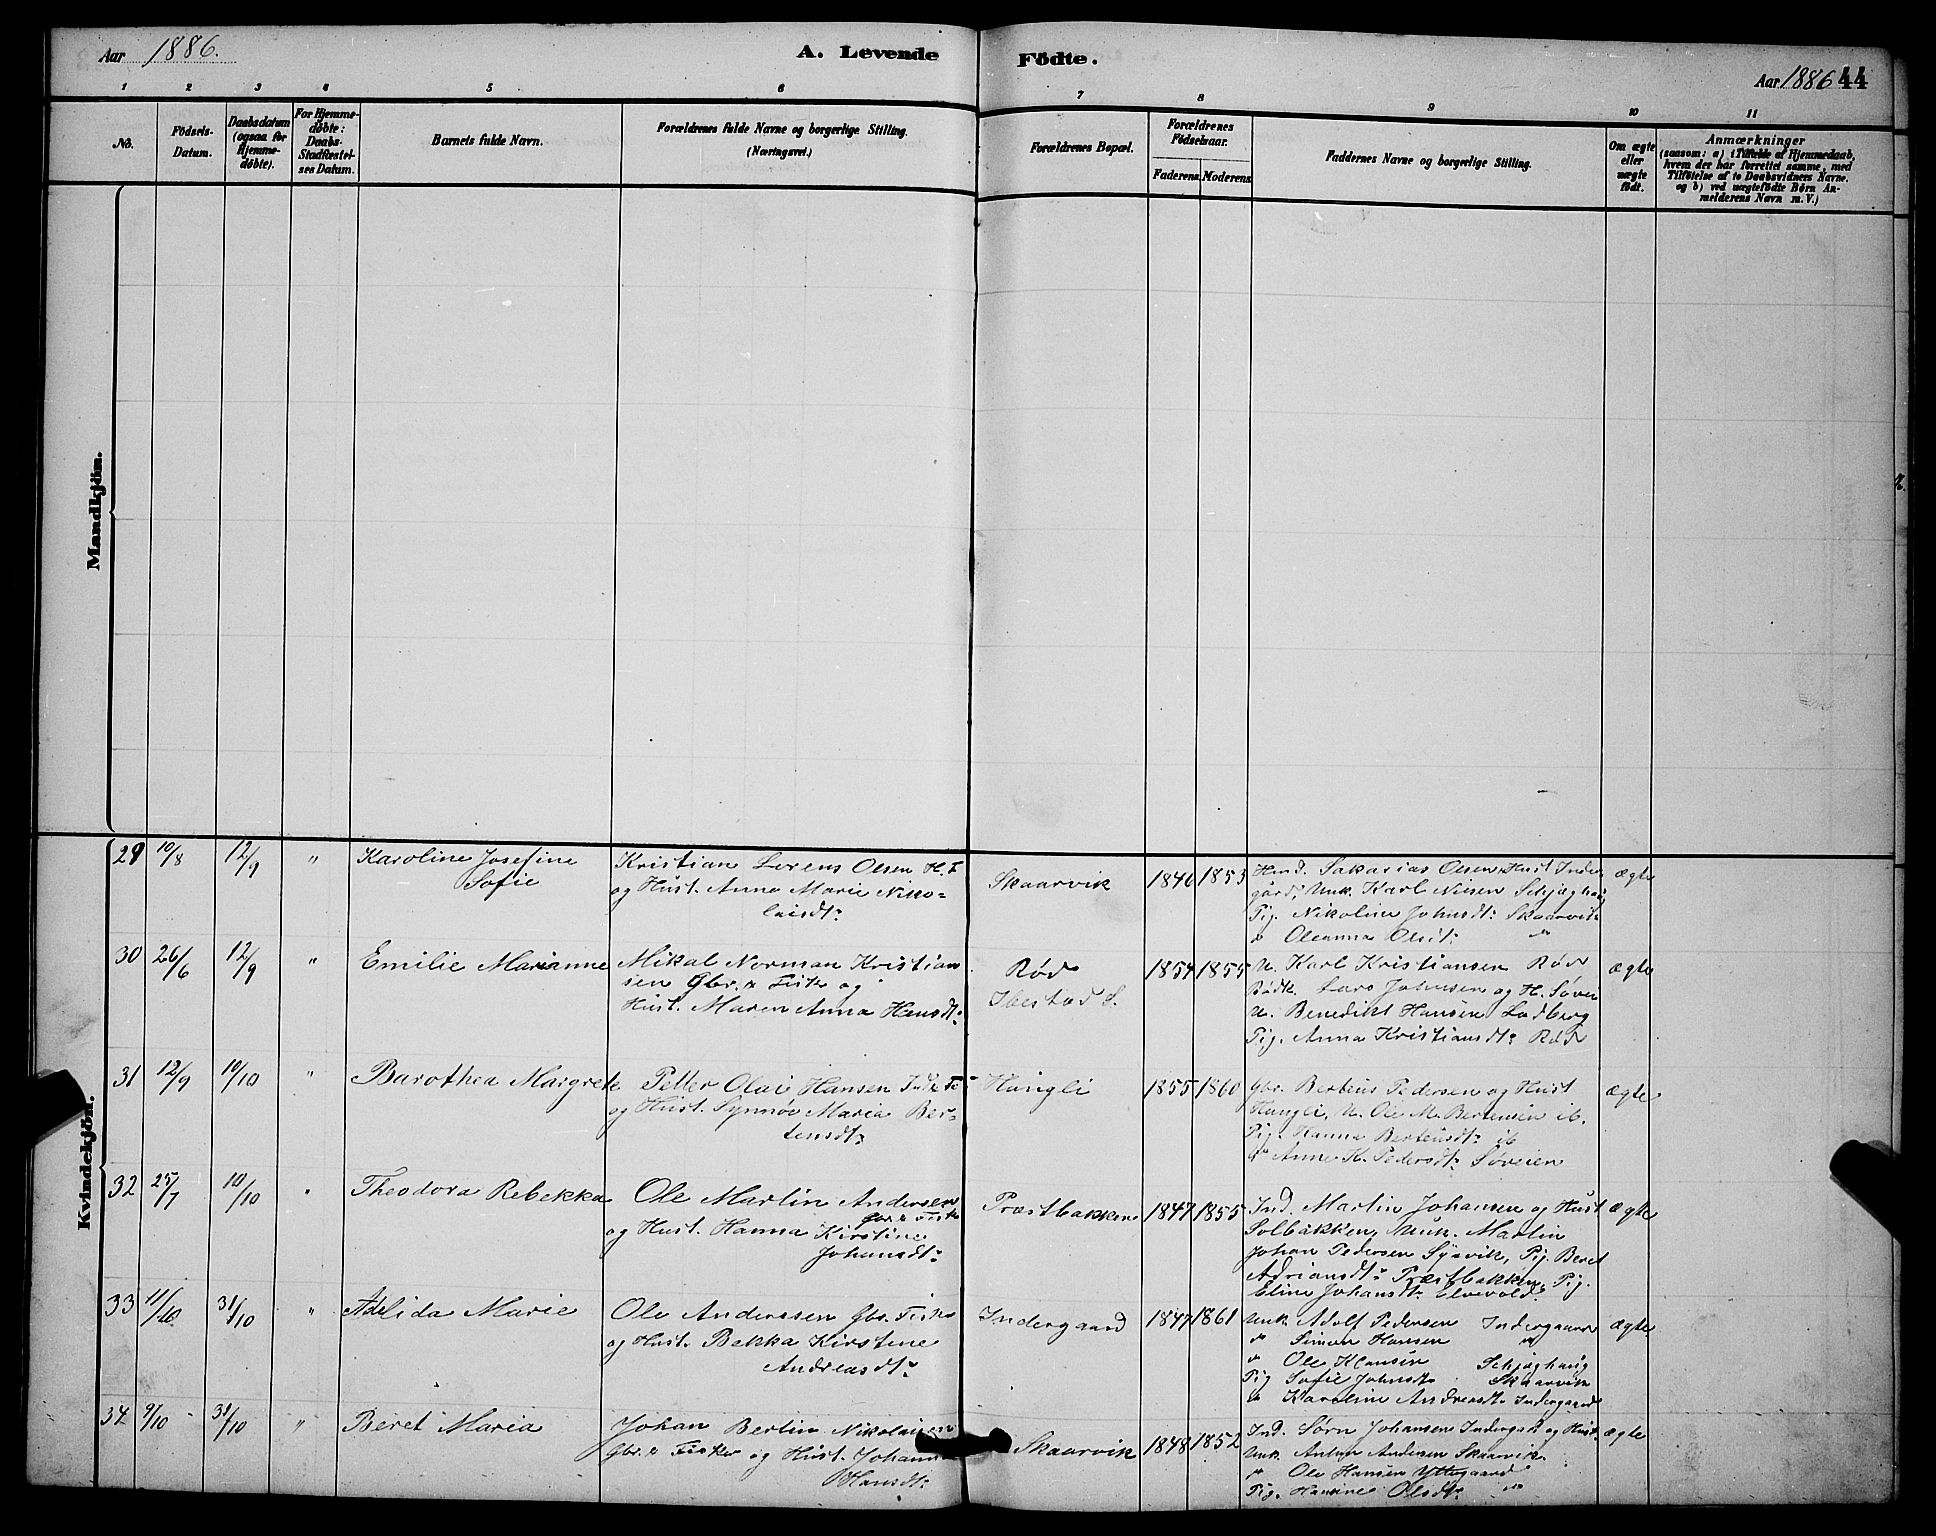 Aar 1886.
A. Levende
Födte.
Aar 1886 44
1 2 3 4 5 6 7 8 9 10 11
No.
Födsels-
Datum.
Daabsdatum
(ogsaa for
Hjemme-
døbte).
For Hjemme-
døbte:
Daabs-
Stadfæstel-
ses Datum.
Barnets fulde Navn.
Forældrenes fulde Navne og borgerlige Stilling.
(Næringsvei.)
Forældrenes Bopæl.
Forældrenes
Födselsaar.
Faderens. Moderens.
Faddernes Navne og borgerlige Stilling.
Om ægte
eller
uægte
födt.
Anmærkninger
(saasom: a) i Tilfælde af Hjemmedaab,
hvem der har forrettet samme, med
Tilföielse af to Daabsvidners Navne.
og b) ved uægtefödte Börn An-
melderens Navn m. V.)
Mandkjön.
Kvindekjön.
29 10/8 12/9 " Karoline Josefine
Sofie
Kristian Lorens Olsen H. F
og Hust. Anna Marie Niko-
laisdt:
Skaarvik 1846 1853
Sakasias Olsen Hust Inder
gård, Unk. Karl Nilsen
Pig. Nikoline Johnsdt: Skaarvik
" Oleanna Olsdt: "
ægte
30 26/6 12/9 " Emilie Marianne
Mikal Norman Kristian
sen Gbr. & Fisk og
Hust. Maren Anna Hansdt:
Röd
Ibestad S.
1854 1855
U. Karl Kristiansen Röd
Bödk. Lars Johnsen og H. Søvei
U. Benedikt Hansen Ladberg
Pig. Anna Kristiansdt: Röd
ægte
31 12/9 10/10 " Barothea Margrete
Petter Olai Hansen Inds Fi
og Hust. Synnöv Maria Ber-
tensdt:
Hangli 1855 1860
Gbr. Berteus Pedersen og Hust
Hangli, U. Ole M. Bertensen ib.
Pig. Hanna Berteusdt: ib
" Anne H. Pedersdt: Søveien
ægte
32 25/7 10/10 " Theodora Rebekka
Ole Martin Andersen
Gbr. & Fisk
og Hust. Hanna Kirstine
Johansdt:
Præstbakken 1847 1855
Ind. Martin Johansen og Hust
Solbakken, Unk. Martin
Johan Pedersen Sjøvik, Pig. Beret
Adriansdt: Præstbakken, Pig.
Eline Johansdt: Elvevold.
ægte
33 11/10 31/10 " Adelida Marie
Ole Anderssen Gbr. Fisker
og Hust. Bekka Kirstene
Andreasdt:
Indergaard 1847 1861
Unk. Adolf Pedersen Indergaard
" Simon Hansen "
" Ole Klausen Schjæghaug
Pig Sofie Johnsdt: Skaarvik
" Karoline Andreasdt: Indergaard
ægte
34 9/10 31/10 " Beret Maria
Johan Bertin Nikolaisen
Gbr. & Fisker og Hust. Johanna
Hansdt:
Skaarvik 1848 1852
Ind. Sørn Johansen Inderga og Hust.
Unk. Anton Andersen Skaarvik
" Ole Hansen Yttegaard
Pig. Hansine Olsdt: "
ægte